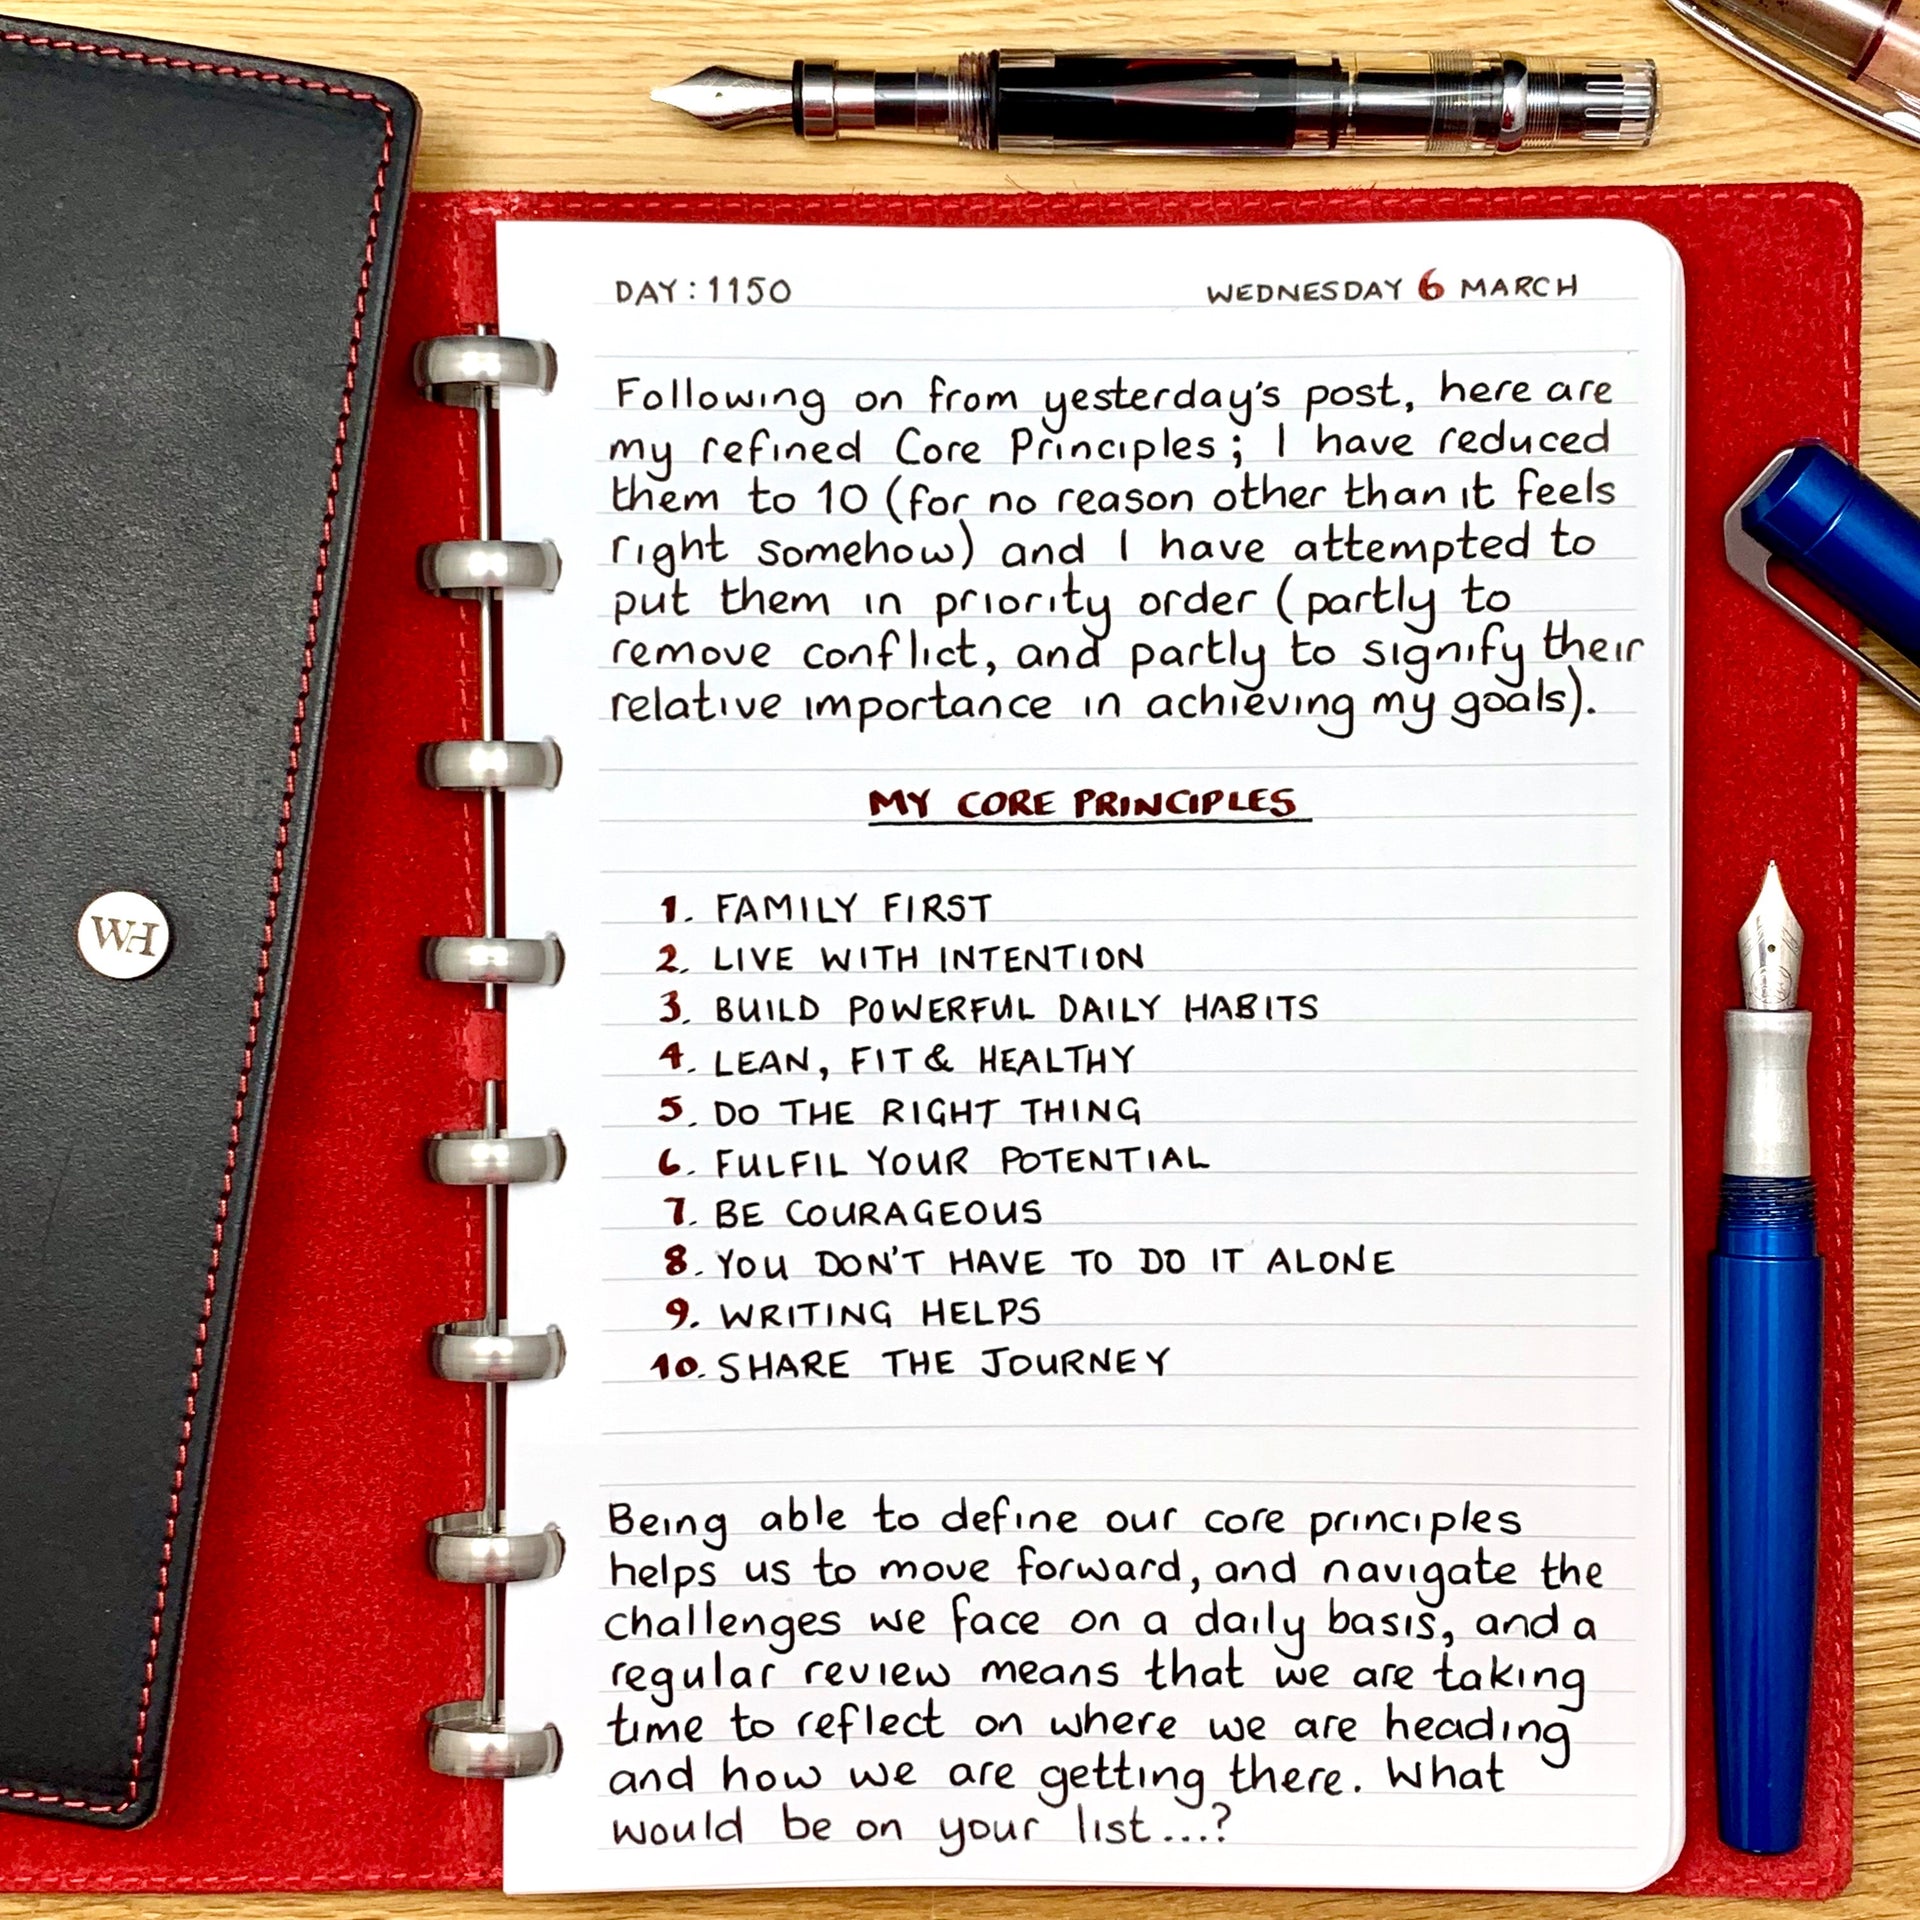 WH
DAY: 1150
WEDNESDAY 6 MARCH
Following on from yesterday's post, here are
my refined Core Principles; I have reduced
them to 10 (for no reason other than it feels
right somehow) and I have attempted to
put them in priority order (partly to
remove conflict, and partly to signify their
relative importance in achieving my goals).
MY CORE PRINCIPLES
1. FAMILY FIRST
2. LIVE WITH INTENTION
3. BUILD POWERFUL DAILY HABITS
4. LEAN, FIT & HEALTHY
5. DO THE RIGHT THING
6. FULFIL YOUR POTENTIAL
7. BE COURAGEOUS
8. YOU DON'T HAVE TO DO IT ALONE
9. WRITING HELPS
10. SHARE THE JOURNEY
Being able to define our core principles
helps us to move forward, and navigate the
challenges we face on a daily basis, and a
regular review means that we are taking
time to reflect on where we are heading
and how we are getting there. What
would be on your list...?